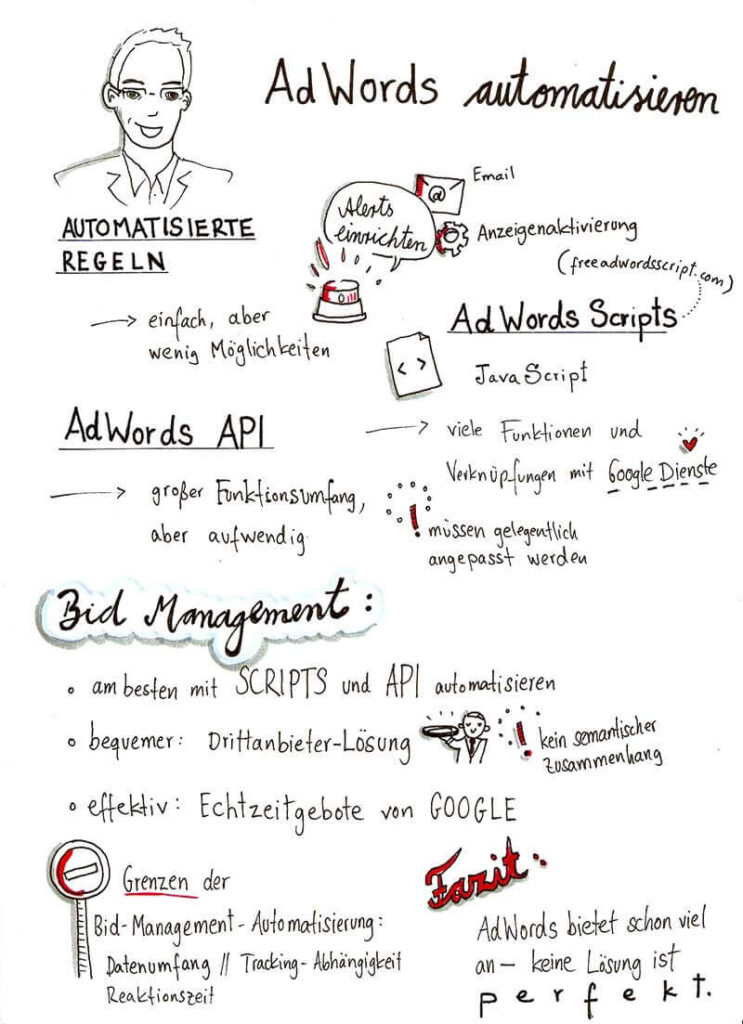 AdWords automatisieren
AUTOMATISIERTE
REGELN
→ einfach, aber
wenig Möglichkeiten
Alerts
einrichten
@
Email
Anzeigenaktivierung
(freeadwordsscript.com)
AdWords Scripts
< >
JavaScript
→ viele Funktionen und
Verknüpfungen mit Google Dienste
! müssen gelegentlich
angepasst werden
AdWords API
→ großer Funktionsumfang,
aber aufwendig
Bid Management:
• am besten mit SCRIPTS und API automatisieren
• bequemer: Drittanbieter-Lösung
! kein semantischer
Zusammenhang
• effektiv: Echtzeitgebote von GOOGLE
Grenzen der
Bid-Management-Automatisierung:
Datenumfang // Tracking-Abhängigkeit
Reaktionszeit
Fazit:
AdWords bietet schon viel
an – keine Lösung ist
perfekt.